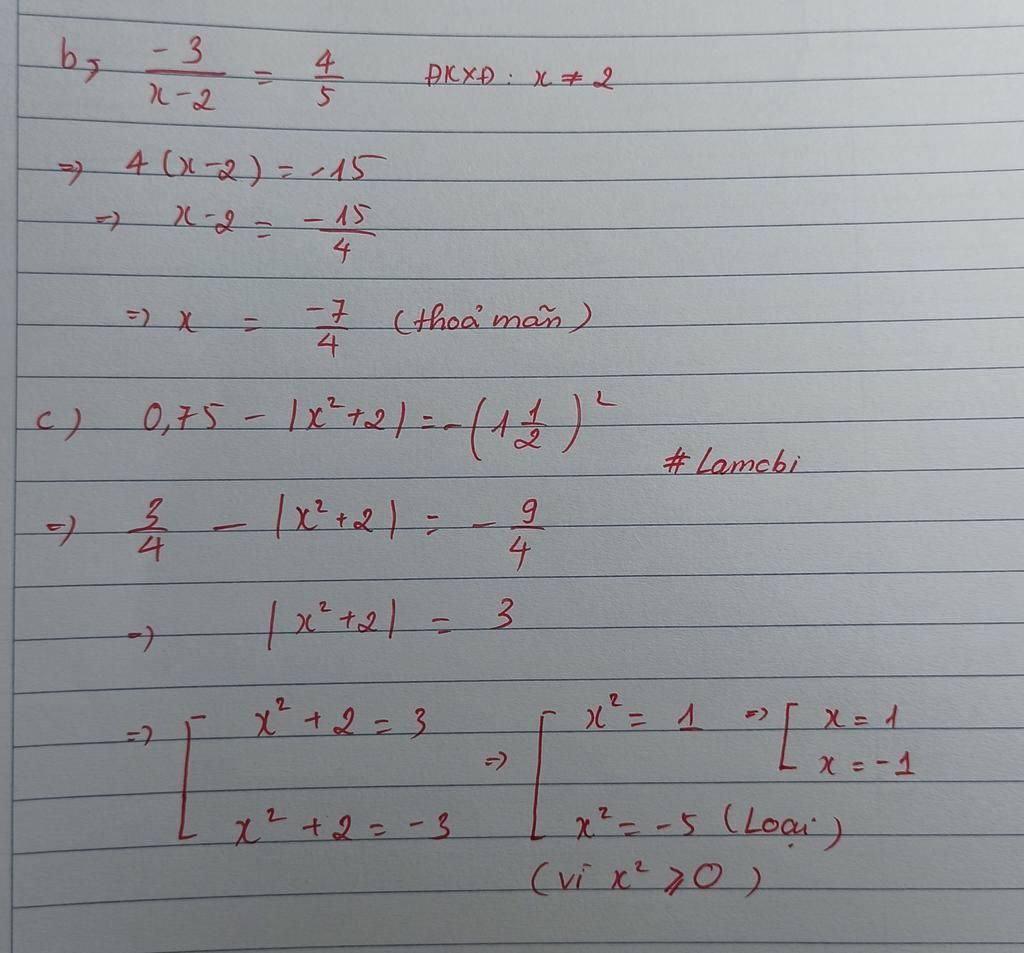 b, -3/(x-2) = 4/5 ĐKXĐ: x ≠ 2
=> 4(x-2) = -15
=> x-2 = -15/4
=> x = -7/4 (thoả mãn)
c) 0,75 - |x²+2| = -(1 1/2)²
#Lamcbi
=> 3/4 - |x²+2| = -9/4
=> |x²+2| = 3
=> [ x²+2 = 3 => [ x² = 1 => [ x = 1
x = -1
x²+2 = -3 x² = -5 (Loại)
(vì x² ⩾ 0)